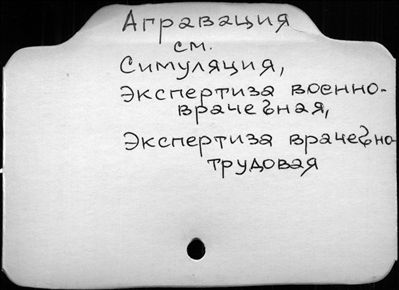 Агравация
см.
Симуляция,
Экспертиза военно-
врачебная,
Экспертиза врачебно
трудовая